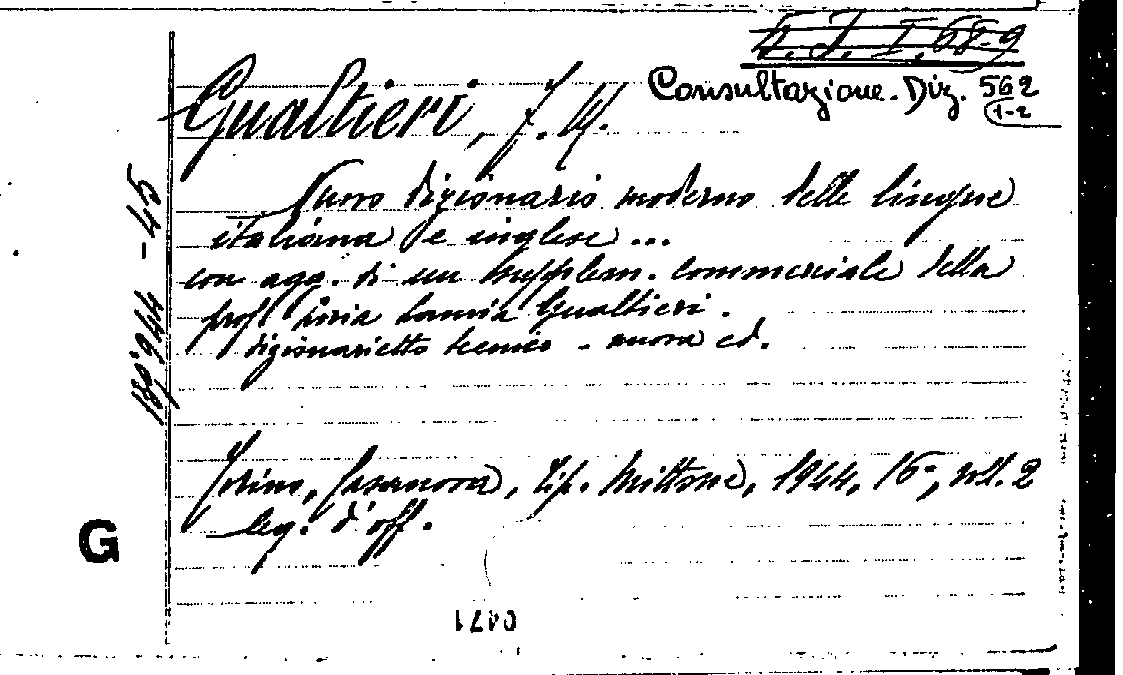 F. I. I. 68-9
Consultazione. Diz. 562
1-2
Gualtieri, F. M.
Nuovo dizionario moderno delle lingue
italiana e inglese ...
con agg. di un supplem. commerciale della
prof. Livia Lamia Gualtieri.
dizionarietto tecnico - nuova ed.
Torino, Casanova, tip. Mittone, 1944, 16°, vol. 2
leg. d'off.
-45
G
0471